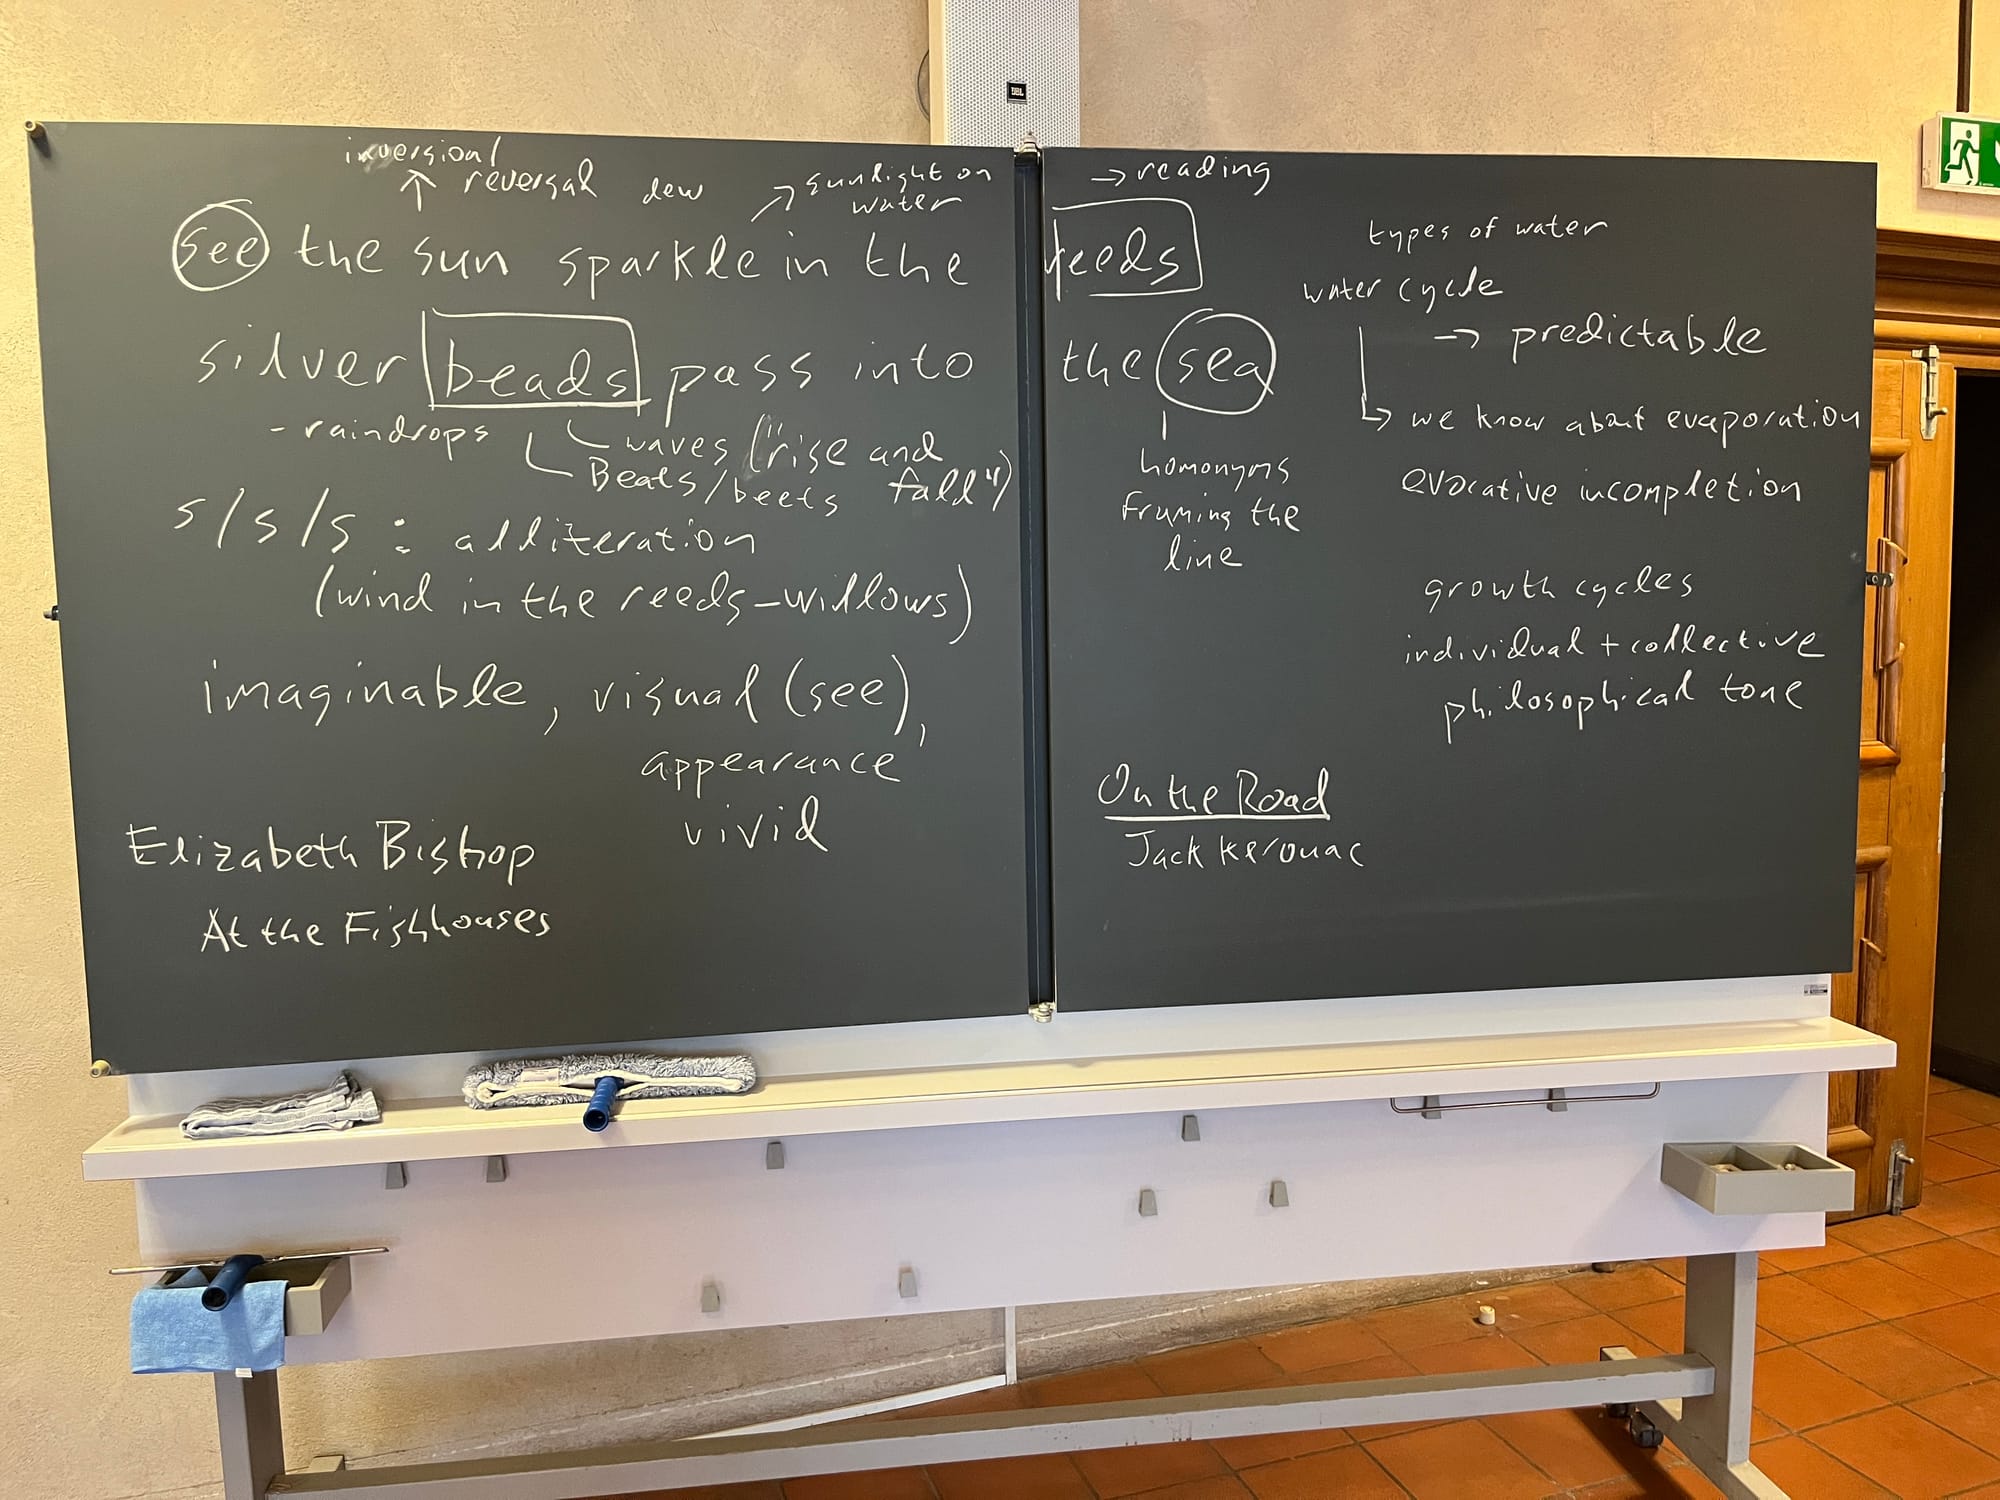 inversional
reversal dew → sunlight on → reading
water
see the sun sparkle in the reeds
silver beads pass into the sea
- raindrops waves ("rise and
Beats/beets fall")
s/s/s : alliteration
(wind in the reeds-willows)
imaginable, visual (see),
appearance
vivid
Elizabeth Bishop
At the Fishhouses
types of water
water cycle
→ predictable
we know about evaporation
homonyms
framing the
line
evocative incompletion
growth cycles
individual + collective
philosophical tone
On the Road
Jack Kerouac
JBL